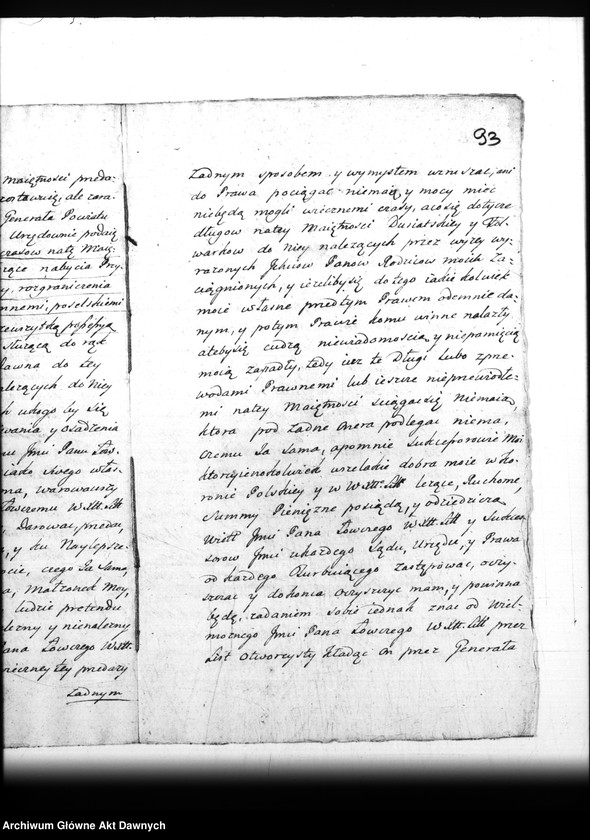 93
Maiętności preda-
zostawuię, ale zara-
Generała Powiatu
Urzędownie podaię
czasow natę Maię-
rące nabycia Pry-
y, rozgraniczenia
mnemi, poselskiemi
służącą do rąk
ławna do tey
alezących do Niey
h udogo by się
wania y osadzenia
mu Jmci Panu Łow.
iado swego włas-
ma, warowawszy
Łowczemu W. Xtt. Litt
, Darować, przeda,
, y ku Naylepsze-
ocie, czego Ja Sama,
a, Małżonek Moy,
ludzie pretendu
lezny y nienalezny
ana Łowczego W. Xtt.
niczney tey predazy
żadnym
Żadnym sposobem y wymysłem wzruszać, ani
do Prawa pociągać niemaią, y mocy mieć
niebędą mogli wiecznemi czasy, acosię dotycze
długow natey Maiętności Dusiatskiey y Fol-
warkow do Niey nalezących przez wyzey wy-
razonych Jchmciow Panow Rodzicow moich Za-
ciągnionych, y iezelibysię do tego iakie kolwiek
moie własne przedtym Prawem odemnie da-
nym, y potym Prawie komu winne nalazły
atebysię cudzą niewiadomoscią, y niepamięcią
moią zapadły, tedy iuz te Długi lubo zpre-
wodami Prawnemi lub ieszcze nieprzewiedzie-
mi natey Maiętności sciągaćsię Niemaią,
ktora pod zadne Onera podlegać niema,
czemu Ja sama, apomnie Sukcessorowie Moi
ktorzyienokolwiek wszelakie dobra moie w Ko-
ronie Polskiey y w W. Xtt. Litt. lezące, Ruchome,
Summy Pieniężne posiędą, y odziedziczą
Wiel Jmci Pana Łowczego W. Xtt. Litt y Sukces-
sorow Jmci ukazdego Sądu, Urzędu, y Prawa
od kazdego Turbuiącego zastępować, oczy-
szczać y dokonca oczyszczyc mam, y powinna
będę, zadaniem sobie iednak znać od Wiel-
moznego Jmci Pana Łowczego W. Xtt. Litt przez
List Otworzysty kładąc On przez Generała
Archiwum Główne Akt Dawnych